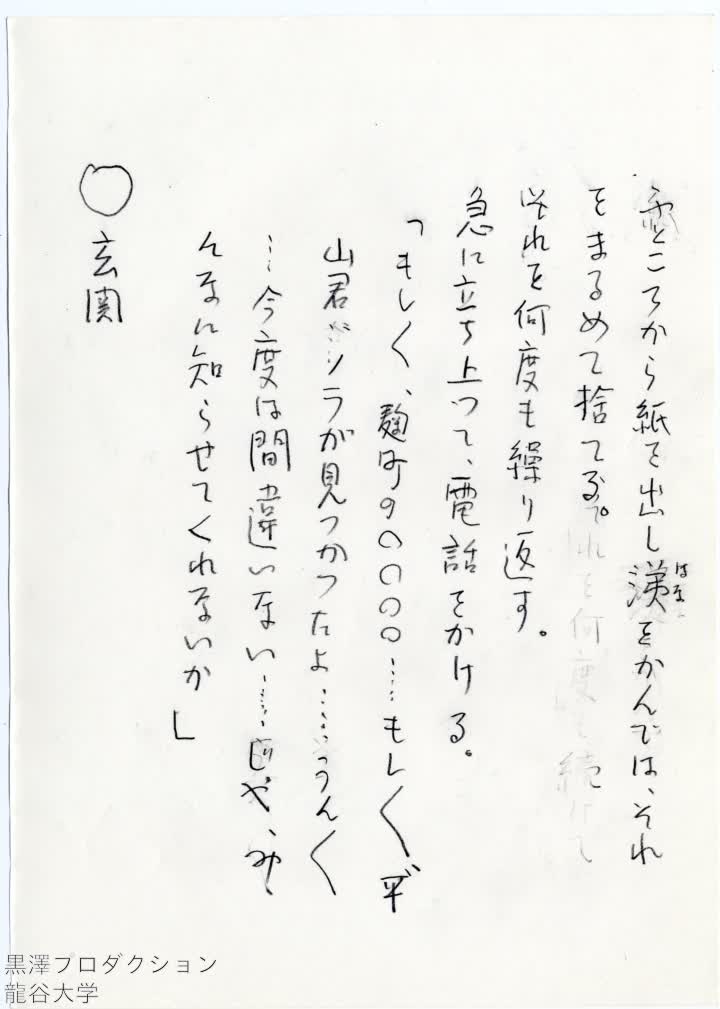 ふところから紙を出し洟をかんでは、それ
はな
をまるめて捨てる。
それを何度も繰り返す。
急に立ち上つて、電話をかける。
「もし〱、麹町の〇〇〇〇……もし〱、平
山君、ソラが見つかつたよ……うん〱
…今度は間違いない……じや、み
んなに知らせてくれないか」
〇 玄関
黒澤プロダクション
龍谷大学